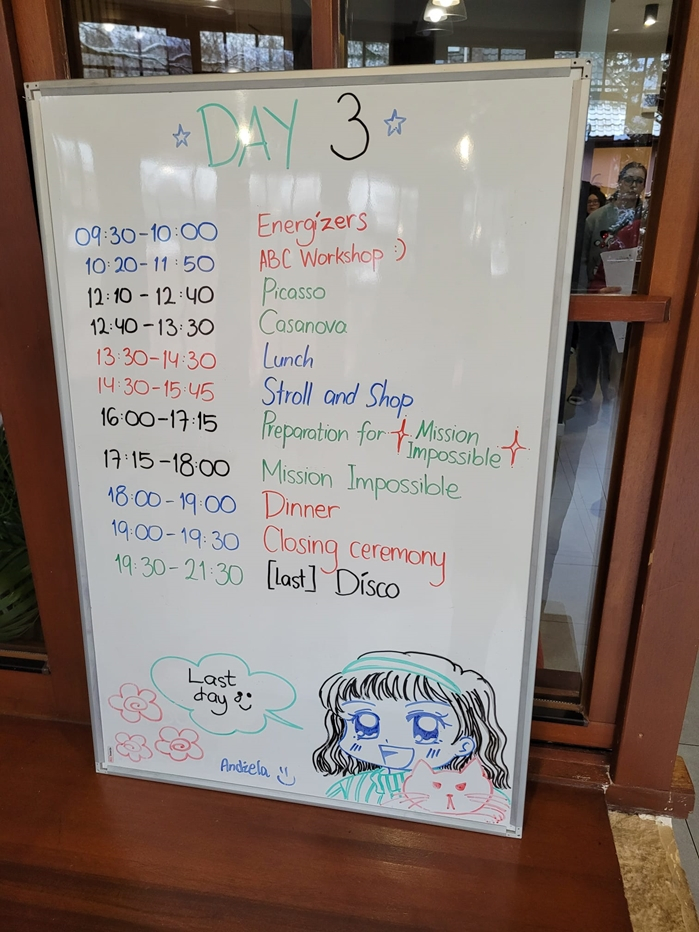 DAY 3
09:30-10:00 Energizers
10:20-11:50 ABC Workshop :)
12:10-12:40 Picasso
12:40-13:30 Casanova
13:30-14:30 Lunch
14:30-15:45 Stroll and Shop
16:00-17:15 Preparation for Mission
Impossible
17:15-18:00 Mission Impossible
18:00-19:00 Dinner
19:00-19:30 Closing ceremony
19:30-21:30 [last] Disco
Last
day
Andżela